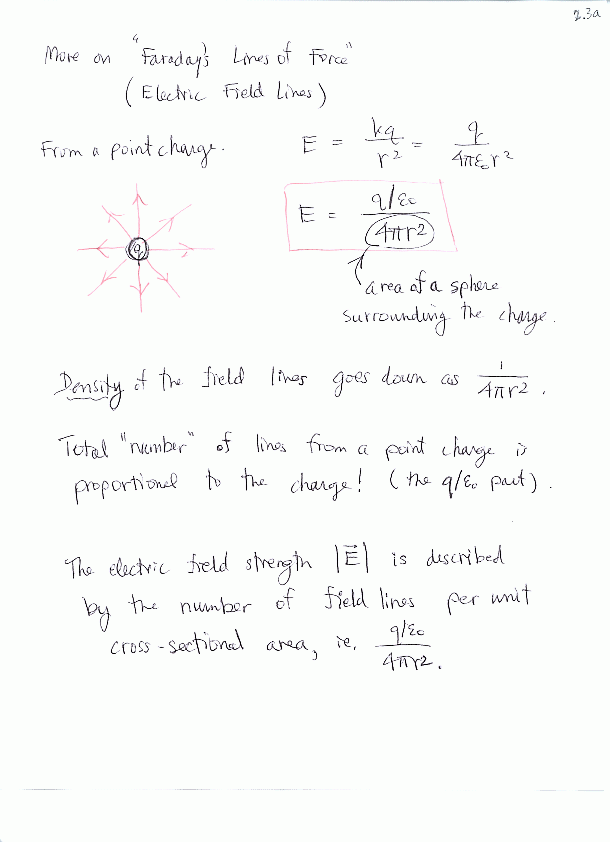 2.3a
More on "Faraday's Lines of Force"
(Electric Field Lines)
From a point charge.
E = kq/r² = q/4πε₀r²
q
E = q/ε₀ / 4πr²
area of a sphere
surrounding the charge.
Density of the field lines goes down as 1/4πr².
Total "number" of lines from a point charge is
proportional to the charge! (the q/ε₀ part).
The electric field strength |E⃗| is described
by the number of field lines per unit
cross-sectional area, ie. q/ε₀ / 4πr².